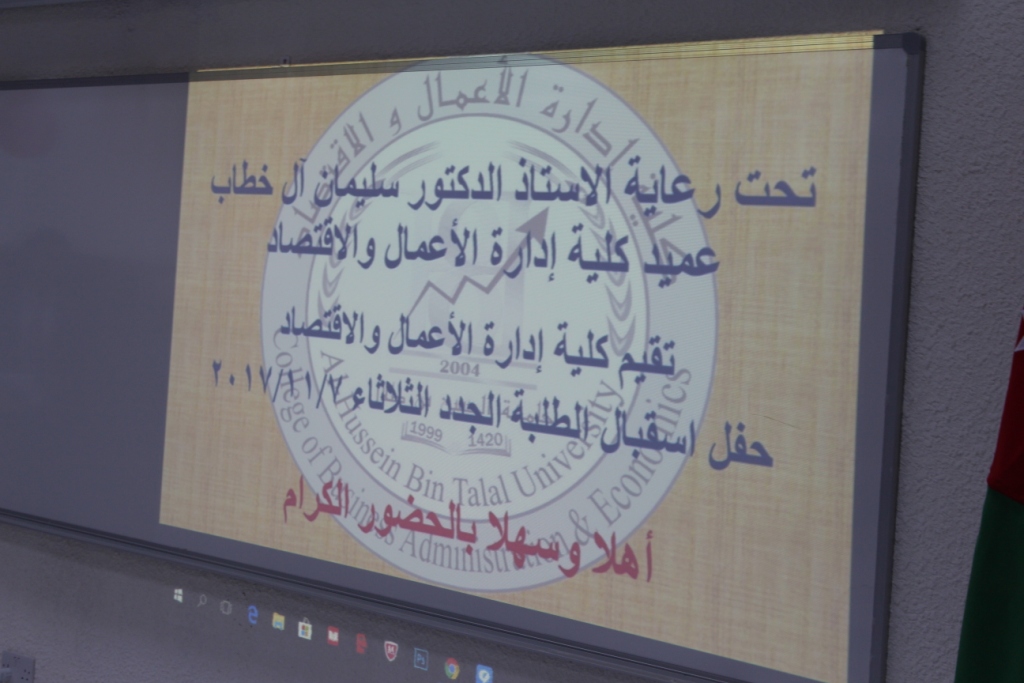 تحت رعاية الاستاذ الدكتور سليمان آل خطاب
عميد كلية إدارة الأعمال والاقتصاد
تقيم كلية إدارة الأعمال والاقتصاد
حفل اسقبال الطلبة الجدد الثلاثاء ٢٠١٧/١١/٧
أهلا وسهلا بالحضور الكرام
إدارة الأعمال و
2004
1999 1420
Al-Hussein Bin Talal University
College of Business Administration & Economics